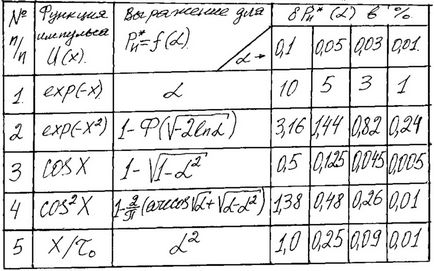 № п/п Функция импульса U(x). Выражение для Pн*=f(α). α→ δPн*(α) в %
0,1 0,05 0,03 0,01
1. exp(-x) α 10 5 3 1
2 exp(-x²) 1-Ф(√-2lnα) 3,16 1,44 0,82 0,24
3 cosx 1-√1-α² 0,5 0,125 0,045 0,005
4 cos²x 1-2/π(arccos√α+√α-α²) 1,38 0,48 0,26 0,01
5 x/τ₀ α² 1,0 0,25 0,09 0,01